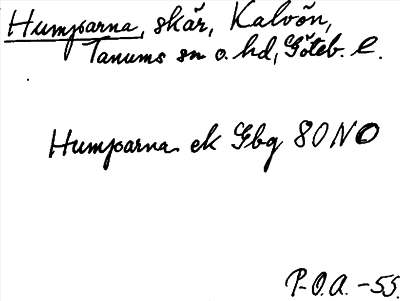 Humparna, skär, Kalvön,
Tanums sn o. hd, Göteb. l.
Humparna ek Gbg 80 NO
P-O.A. -55.